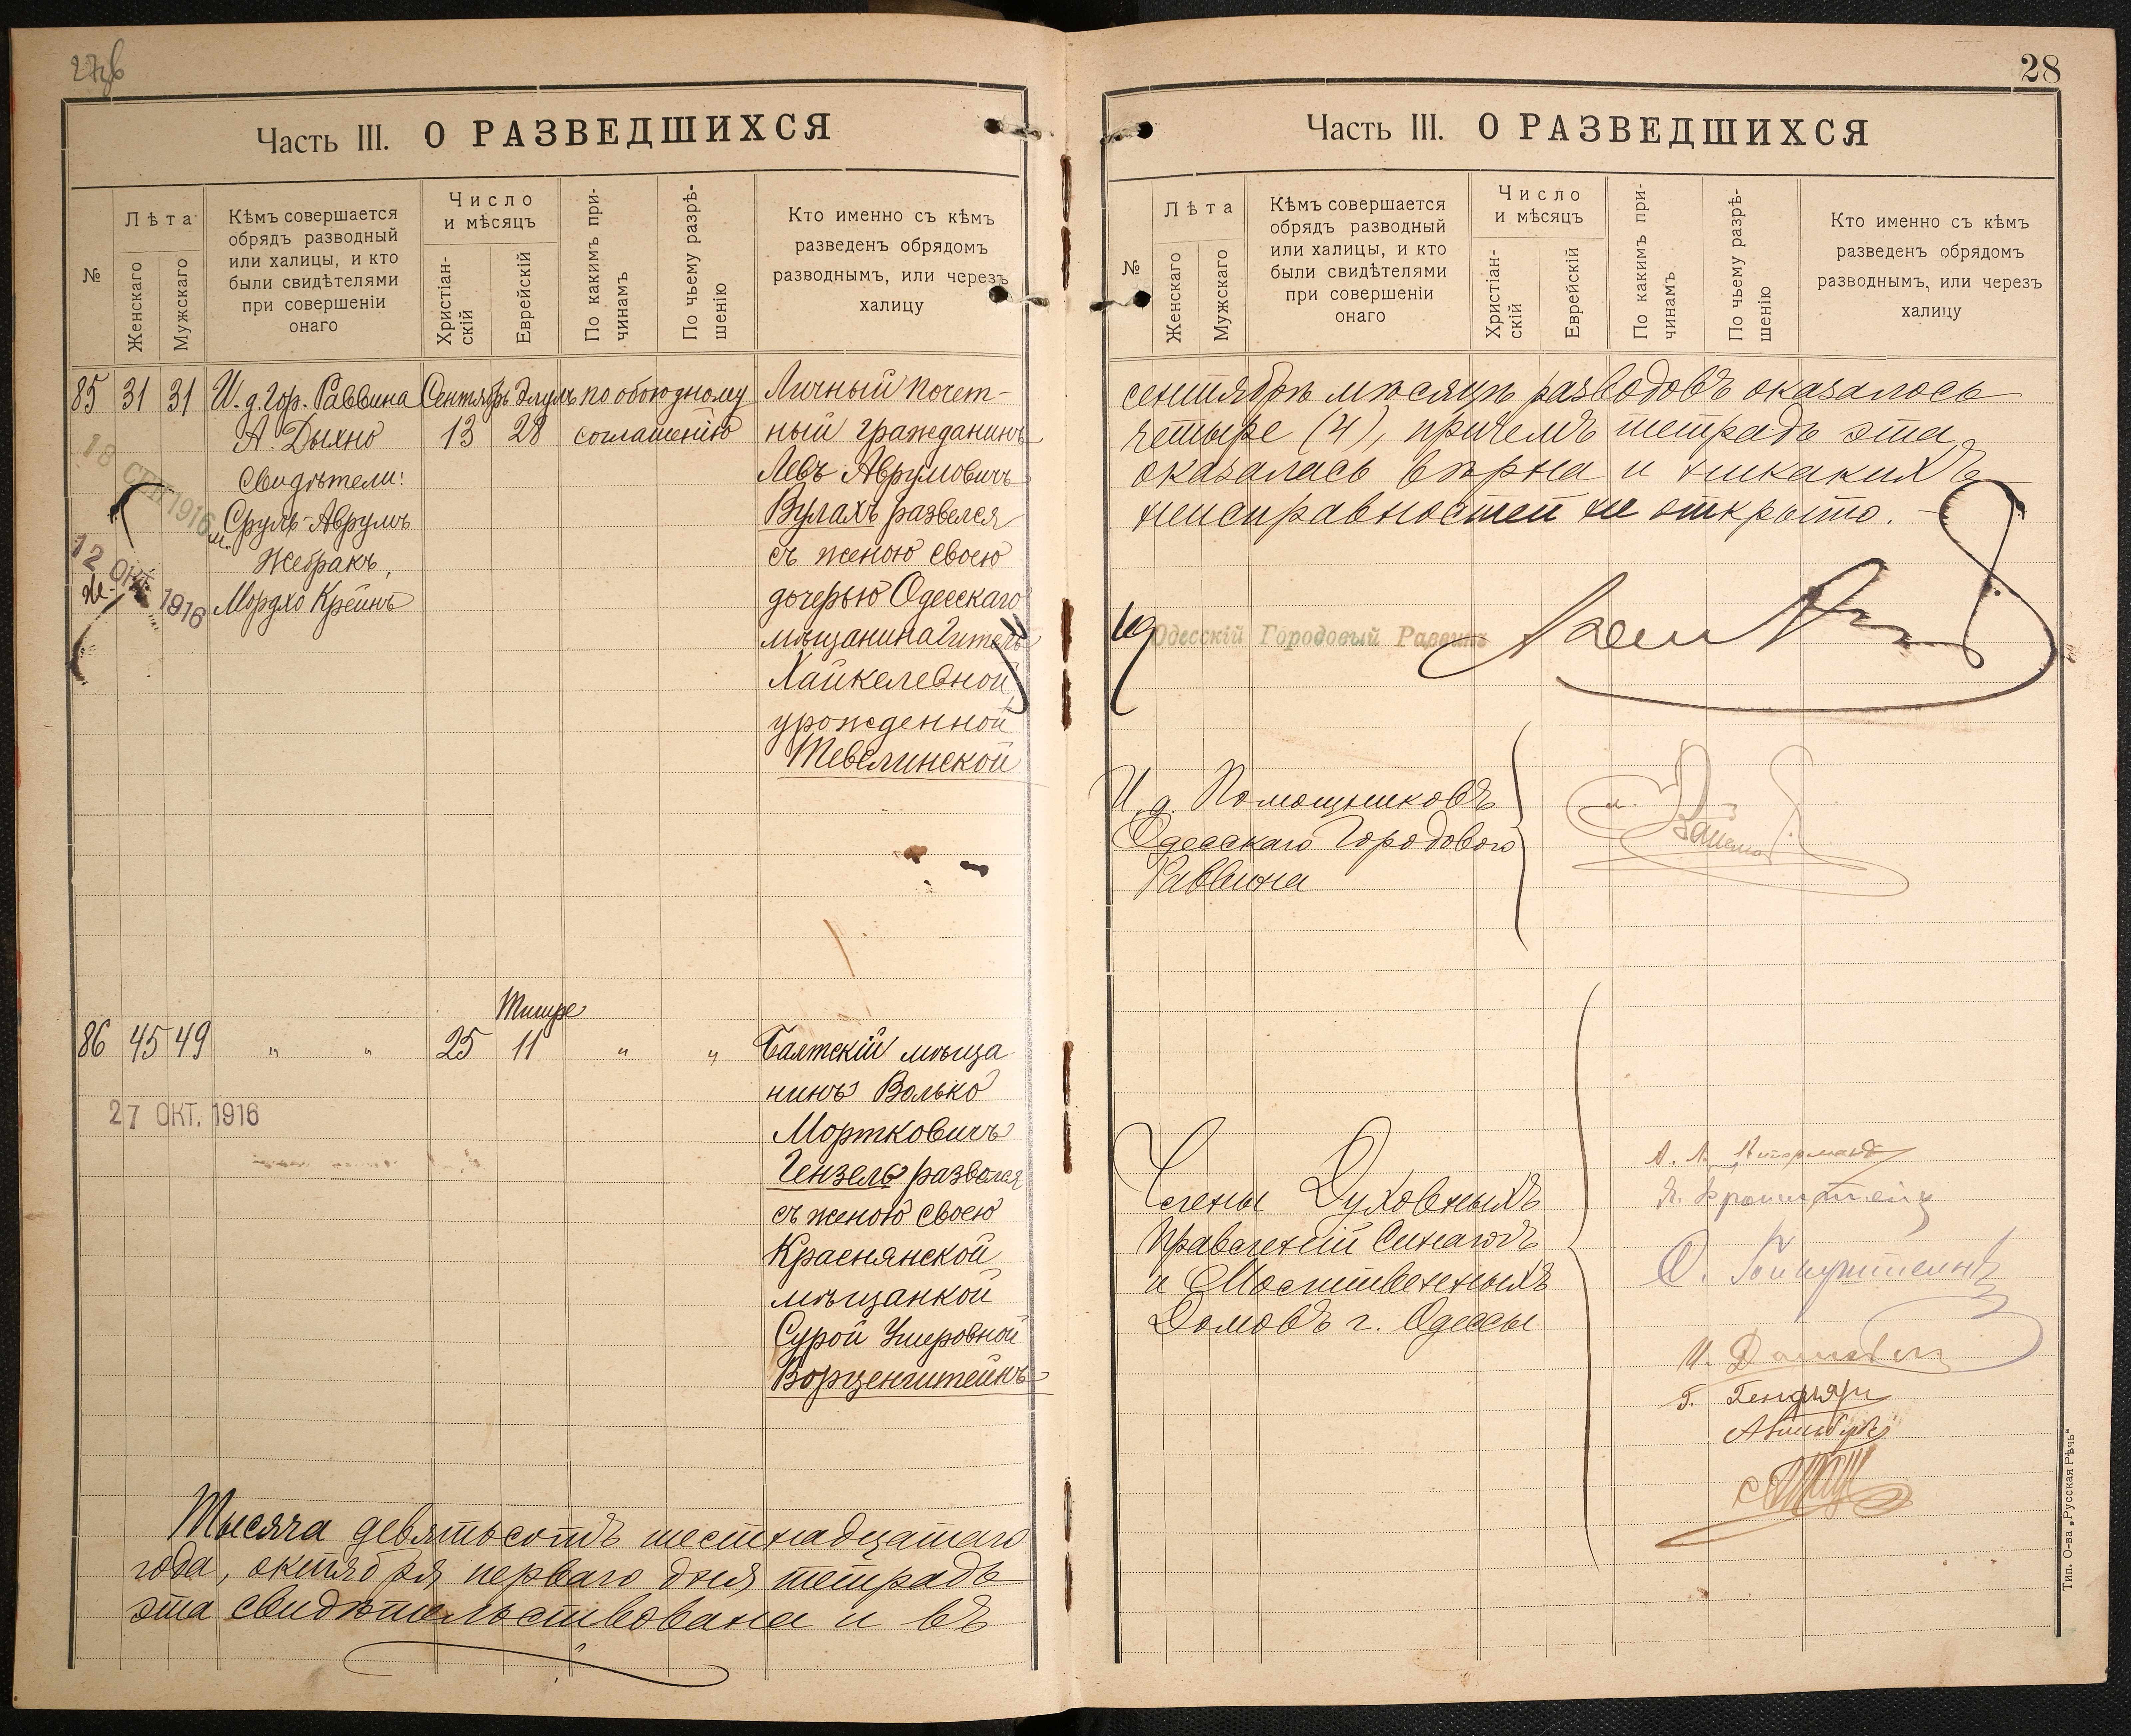 28
Часть III. О РАЗВЕДШИХСЯ
№
Лѣта
Женскаго
Мужскаго
Кѣмъ совершается
обрядъ разводный
или халицы, и кто
были свидѣтелями
при совершеніи
онаго
Число
и мѣсяцъ
Христіан-
скій
Еврейскій
По какимъ при-
чинамъ
По чьему разрѣ-
шенію
Кто именно съ кѣмъ
разведенъ обрядомъ
разводнымъ, или черезъ
халицу
85 31 31 И. д. Гор. Раввина Сентябрь Элулъ по обоюдному Личный почет-
А. Дыхно 13 28 соглашенію ный гражданинъ
18 СЕН 1916
Свидѣтели: Левъ Аврумовичъ
Сруль-Аврумъ Вулахъ развелся
Жебракъ, съ женою своею
12 ОКТ. 1916
Мордхо Крейнъ дочерью Одесскаго
мѣщанина Гитель
Хайкелевной,
урожденной
Тевелинской
Тишре
86 45 49 " " 25 11 " " Балтскій мѣща-
нинъ Волько
27 ОКТ. 1916
Мортковичъ
Гензель развелся
съ женою своею
Краснянской
мѣщанкой
Сурой Умеровной
Ворценштейнъ
Тысяча девятьсотъ шестнадцатаго
года, октября перваго дня тетрадь
эта свидѣтельствована и въ
Часть III. О РАЗВЕДШИХСЯ
№
Лѣта
Женскаго
Мужскаго
Кѣмъ совершается
обрядъ разводный
или халицы, и кто
были свидѣтелями
при совершеніи
онаго
Число
и мѣсяцъ
Христіан-
скій
Еврейскій
По какимъ при-
чинамъ
По чьему разрѣ-
шенію
Кто именно съ кѣмъ
разведенъ обрядомъ
разводнымъ, или черезъ
халицу
сентябрѣ мѣсяцѣ разводовъ оказалось
четыре (4), причемъ тетрадь эта
оказалась вѣрна и никакихъ
неисправностей не открыто.
Одесскій Городовый Раввинъ
И. д. Помощниковъ
Одесскаго Городового
Раввина
Члены Духовныхъ
Правленій Синагогъ
и Молитвенныхъ
Домовъ г. Одессы
Тип. О-ва „Русская Рѣчь“